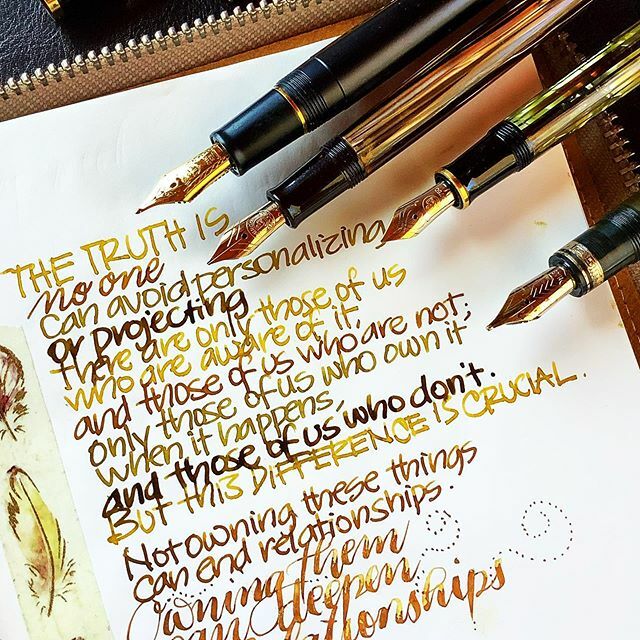 THE TRUTH IS
no one
can avoid personalizing
or projecting
there are only those of us
who are aware of it,
and those of us who are not;
only those of us who own it
when it happens,
and those of us who don't.
But this DIFFERENCE IS CRUCIAL.
Not owning these things
can end relationships.
Owning them
can deepen
relationships